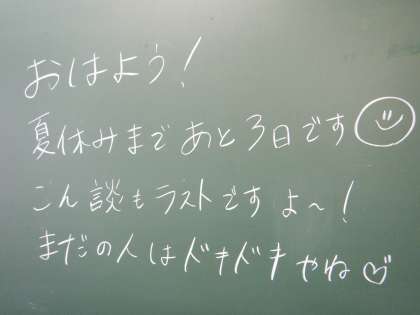 おはよう!
夏休みまであと3日です
こん談もラストですよ～!
まだの人はドキドキやね♡